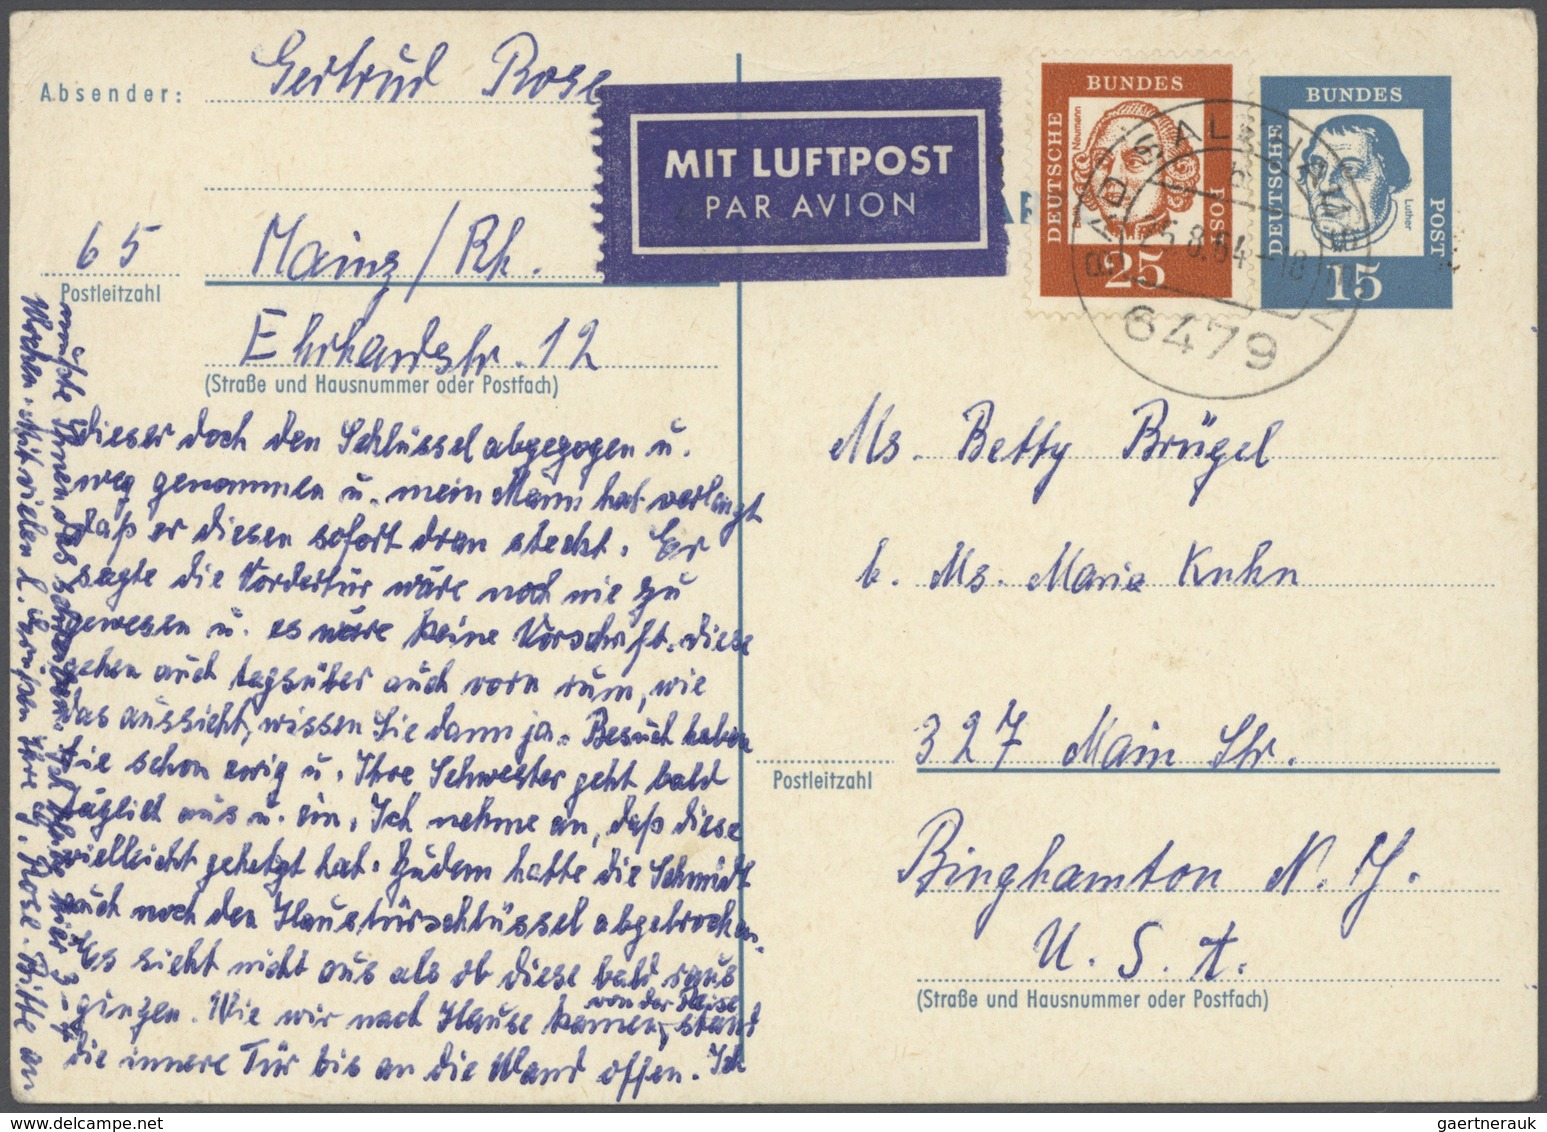 Absender:
Gertrud Rose
65 Mainz/Rh.
Postleitzahl
Ehrhardstr. 12
(Straße und Hausnummer oder Postfach)
MIT LUFTPOST
PAR AVION
DEUTSCHE BUNDES POST
Balthasar Neumann
25
DEUTSCHE BUNDES POST
Luther
15
BAD SALZHAUSEN
b
25.8.64-18
6479
dieser doch den Schlüssel abgezogen u.
weg genommen u. mein Mann hat verlangt
daß er diesen sofort dran steckt. Er
sagte die Vordertür wäre noch nie zu
gewesen u. es wäre keine Vorschrift. diese
gehen auch tagsüber auch vorn rum, wie
das aussieht, wissen Sie dann ja. Besuch haben
Sie schon vorig u. Ihre Schwester geht bald
täglich aus u. ein. Ich nehme an, daß diese
vielleicht gehetzt hat. Zudem hatte die Schmidt
auch noch den Haustürschlüssel abgebrochen.
Es sieht nicht aus als ob diese bald raus
gingen. Wie wir nach Hause kamen von der Reise, stand
die innere Tür bis an die Wand offen. Ich
mußte Ihnen das schreiben. Ich bleibe hier 3-4
Wochen. Mit vielen l. Grüßen Ihre G. Rose. Bitte an
Ms. Betty Brügel
b. Ms. Maria Kuhn
327 Main Str.
Postleitzahl
Binghamton N.Y.
U.S.A.
(Straße und Hausnummer oder Postfach)
gaertnerauk